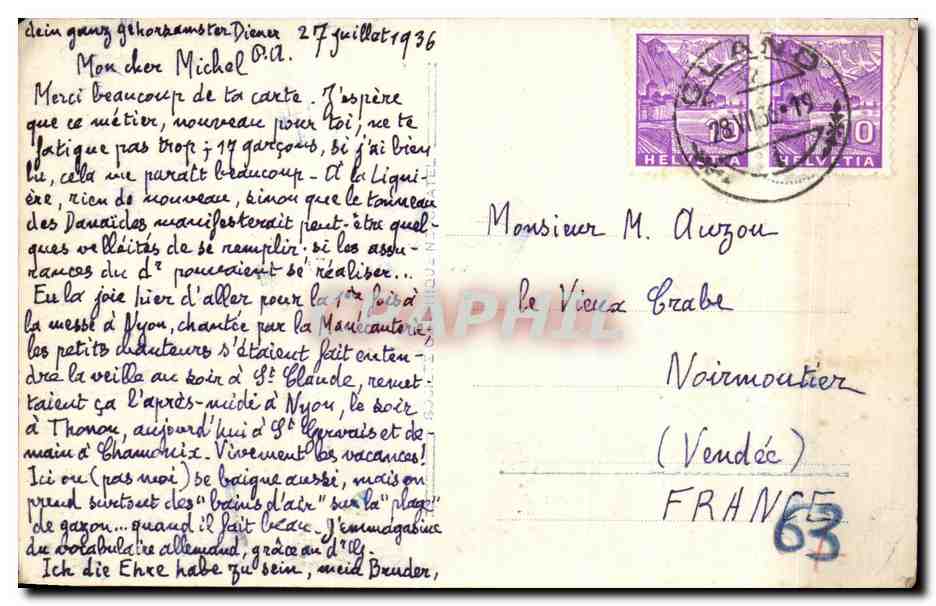 dein ganz gehorsamster Diener 27 juillet 1936
Mon cher Michel P.A.
Merci beaucoup de ta carte. J'espère
que ce métier, nouveau pour toi, ne te
fatigue pas trop ; 17 garçons, si j'ai bien
lu, cela me paraît beaucoup - A la Ligni-
ère, rien de nouveau, sinon que le tonneau
des Danaïdes manifesterait peut-être quel-
ques velléités de se remplir si les assu-
rances du dr pouvaient se réaliser...
Eu la joie hier d'aller pour la 1ère fois à
la messe à Nyon, chantée par la Manécanterie.
les petits chanteurs s'étaient fait enten-
dre la veille au soir à St Claude, remet
taient ça l'après-midi à Nyon, le soir
à Thonon, aujourd'hui à St Gervais et de-
main à Chamonix. Vivement les vacances!
Ici on (pas moi) se baigne aussi, mais on
prend surtout des "bains d'air" sur la "plage"
de gazon... quand il fait beau. J'emmagasine
du vocabulaire allemand, grâce au dr
Ich die Ehre habe zu sein, mein Bruder,
HELVETIA
HELVETIA
GLAND
28.VII.36.19
Monsieur M. Auzou
le Vieux Crabe
Noirmoutier
(Vendée)
FRANCE
63
CPAPHIL